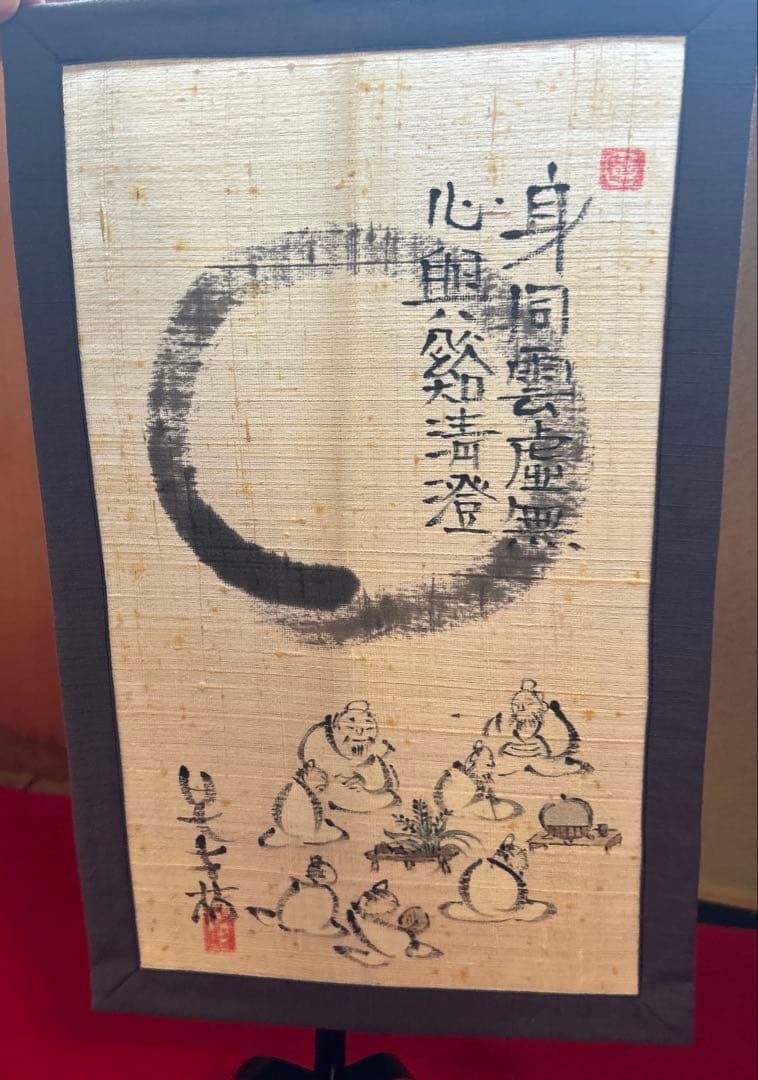 身同雲虚無
心與谿清澄